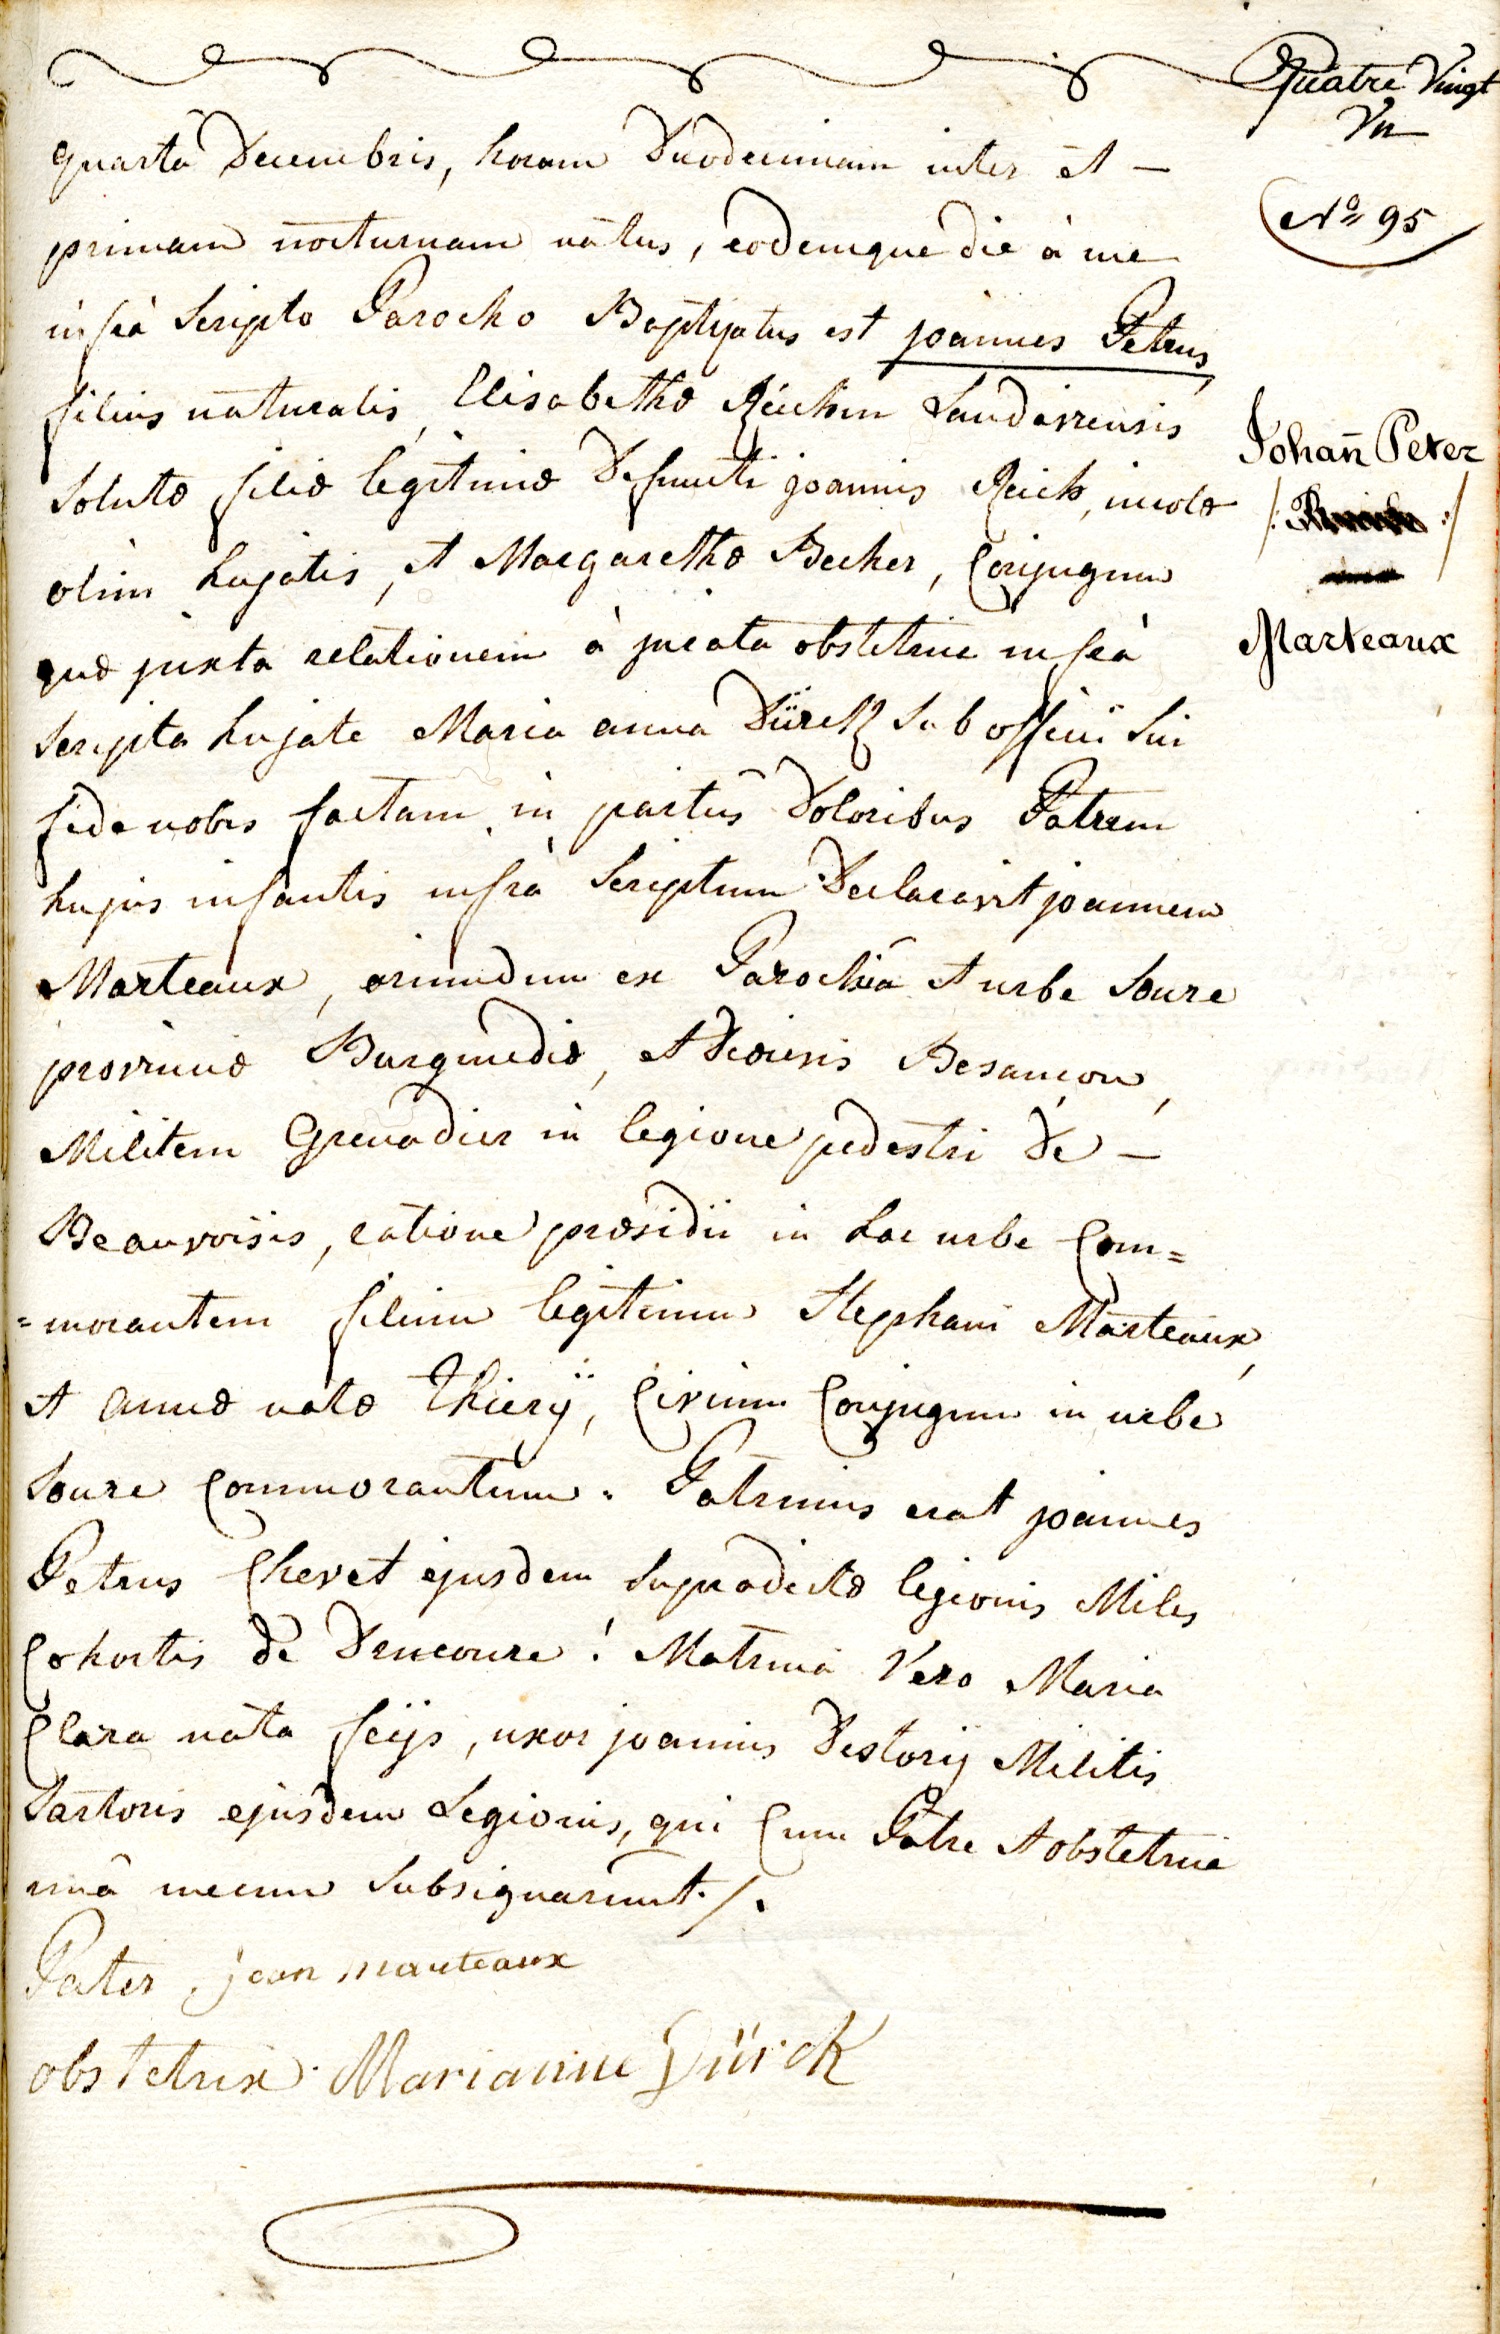 Quatre Vingt
Un
quartâ Decembris, horam Duodecimam inter et —
N.o 95
primam nocturnam natus, eodemque die à me
infrà Scripto Parocho Baptizatus est joannes Petrus,
filius naturalis, Elisabethæ Reichin Landavensis
Johañ Peter
solutæ filiæ legitimæ Defuncti joannis Reich, incolæ
olim hujatis, et Margarethæ Becker, Conjugum
quæ juxta relationem à jurata obstetrice infrà
Marteaux
scripta hujate Maria anna Dürck sub officii sui
fide nobis factam, in partus Doloribus Patrem
hujus infantis infrà Scriptum Declaravit joannem
Marteaux, oriundum ex Parochiâ et urbe Soure
provinciæ Burgundiæ, et Diœcesis Besançon,
Militem Grenadier in legione pedestri de —
Beauvoisis, ratione præsidii in hac urbe Com=
=morantem filium legitimum Stephani Marteaux,
et annæ natæ Thiery, Civium Conjugum in urbe
Soure Commorantium. Patrinus erat joannes
Petrus Chevet ejusdem supradictæ legionis Miles
Cohortis de. Matrina Vero Maria
Clara nata, uxor joannis Destory Militis
Sartoris ejusdem Legionis, qui Cum Patre et obstetrice
unâ mecum Subsignarunt ./.
Pater. jean marteaux
obstetrix. Marianne Dürck